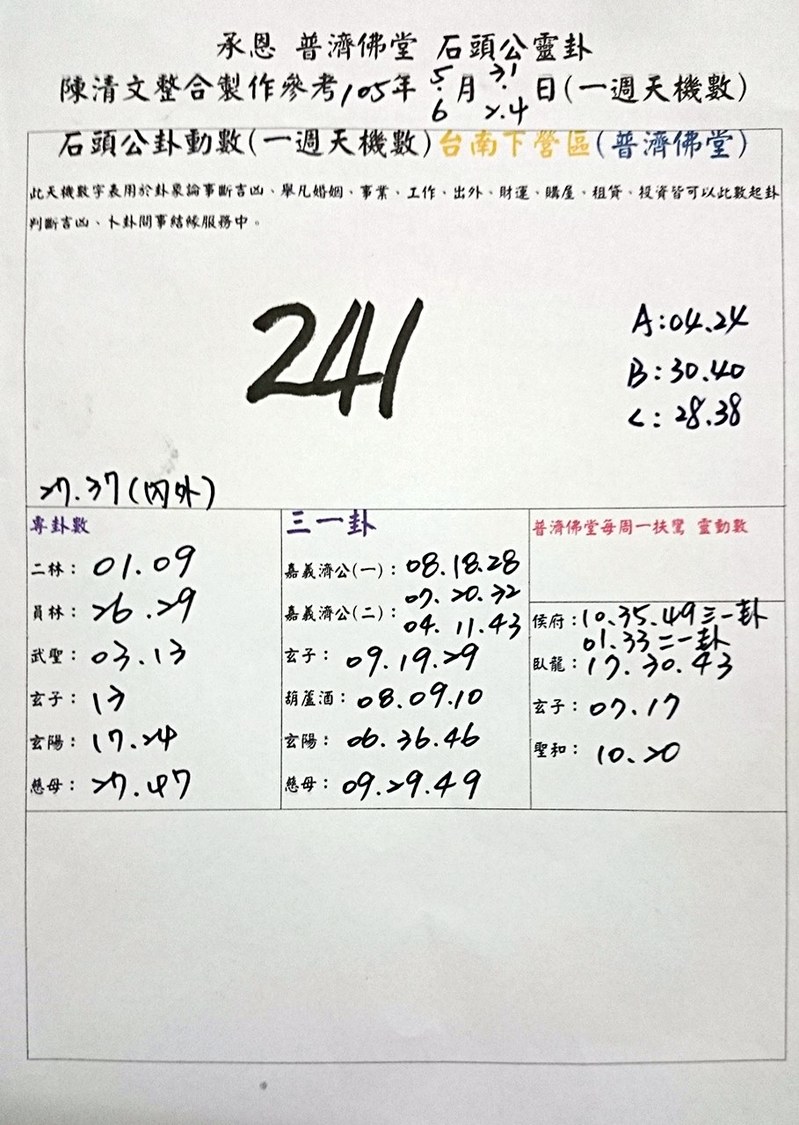 承恩 普濟佛堂 石頭公靈卦
陳清文整合製作參考105年5.6月31.2.4日(一週天機數)
石頭公卦動數(一週天機數)台南下營區(普濟佛堂)
此天機數字表用於卦象論事斷吉凶、舉凡婚姻、事業、工作、出外、財運、購屋、租貸、投資皆可以此數起卦
判斷吉凶、卜卦問事結緣服務中。
241
A:04.24
B:30.40
C:28.38
27.37(內外)
專卦數
二林:01.09
員林:26.29
武聖:03.13
玄子:13
玄陽:17.24
慈母:27.47
三一卦
嘉義濟公(一):08.18.28
07.20.32
嘉義濟公(二):04.11.43
玄子:09.19.29
葫蘆酒:08.09.10
玄陽:06.36.46
慈母:09.29.49
普濟佛堂每周一扶鸞 靈動數
侯府:10.35.49三一卦
01.33二一卦
臥龍:17.30.43
玄子:07.17
聖和:10.20